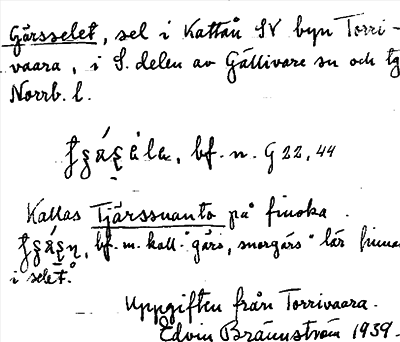 Gårsselet, sel i Kattån SV byn Torri-
vaara, i S. delen av Gällivare sn och tg
Norrb. l.
bf. n. G 22, 44
Kallas Tjärssuanto på finska.
bf. m. kall. "gårs, snorgårs" lär finnas
i selet.
Uppgiften från Torrivaara.
Edvin Brännström 1939.